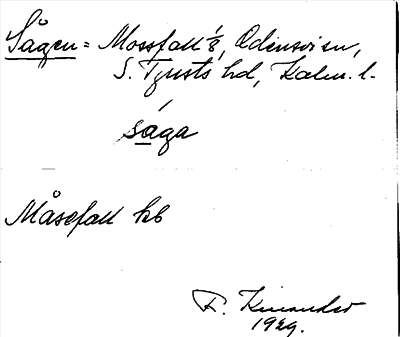 Sågen = Mossfall 1/8, Odensvi sn,
S. Tjusts hd, Kalm. l.
såga
Måsefall kb
F. Kinander
1929.